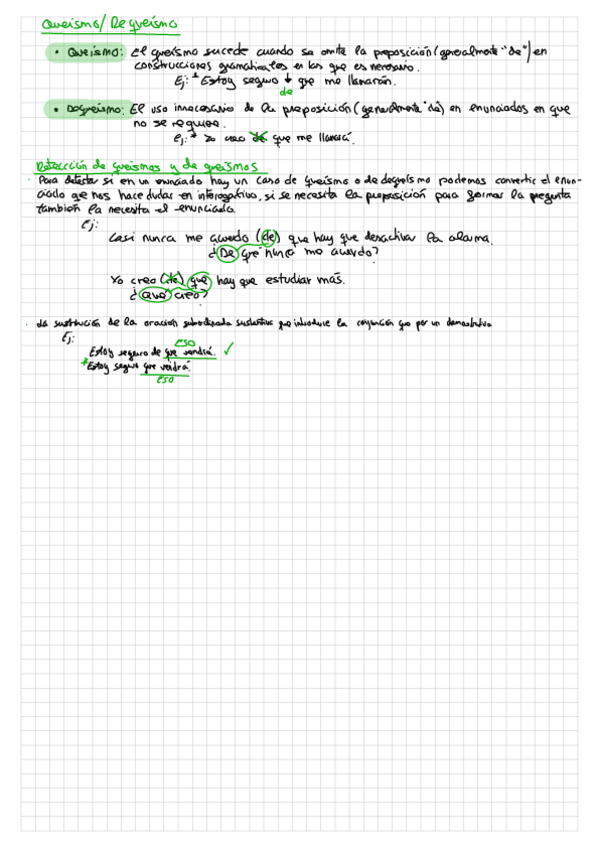 Queísmo/Dequeísmo
• Queísmo: El queísmo sucede cuando se omite la preposición (generalmente "de") en
construcciones gramaticales en las que es necesario.
Ej: * Estoy seguro ↓ que me llamarón.
de
• Dequeísmo: El uso innecesario de la preposición (generalmente "de") en enunciados en que
no se requiere.
Ej: * Yo creo de que me llamará.
Detección de queísmos y de queísmos
Para detectar si en un enunciado hay un caso de queísmo o de dequeísmo podemos convertir el enun-
ciado que nos hace dudar en interogativo, si se necesita la preposición para formar la pregunta
también la necesita el enunciado.
Ej:
Casi nunca me acuerdo (de) que hay que desactivar la alarma.
¿De qué nunca me acuerdo?
Yo creo (de) que hay que estudiar más.
¿Qué creo?
· La sustitución de la oración subordinada sustantiva que introduce la conjunción que por un demostrativo
Ej:
ESO
Estoy seguro de que vendrá. ✓
* Estoy seguro que vendrá.
ESO